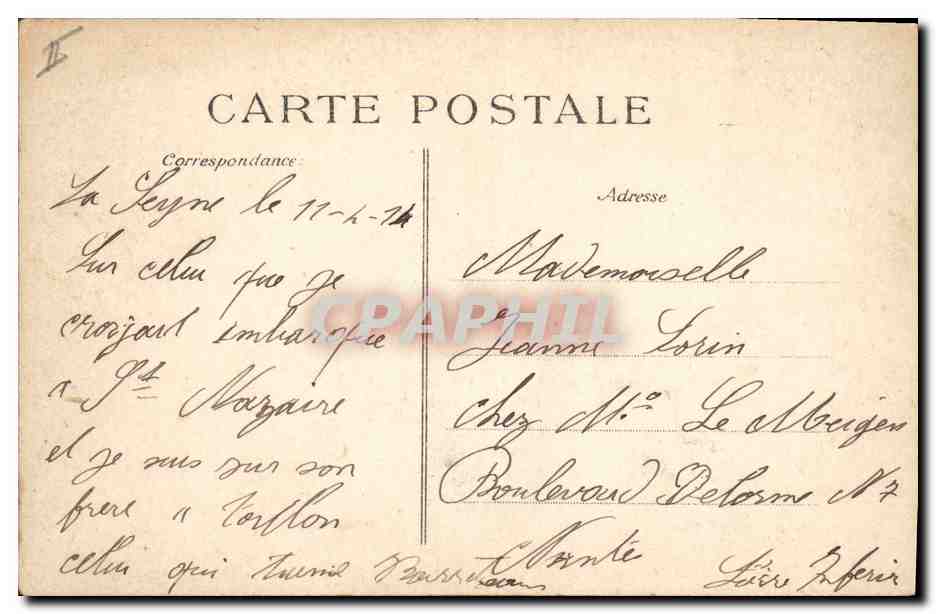 CARTE POSTALE
Correspondance:
La Seyne le 11-4-14
Sur celui que je
croyait embarque
a St Nazaire
et je suis sur son
frere a toullon
celui qui
Adresse
Mademoiselle
Jeanne Lorin
chez Mo Le Meigen
Boulevard Delorme N 7
Nante
Loire Inferir
CPAPHIL